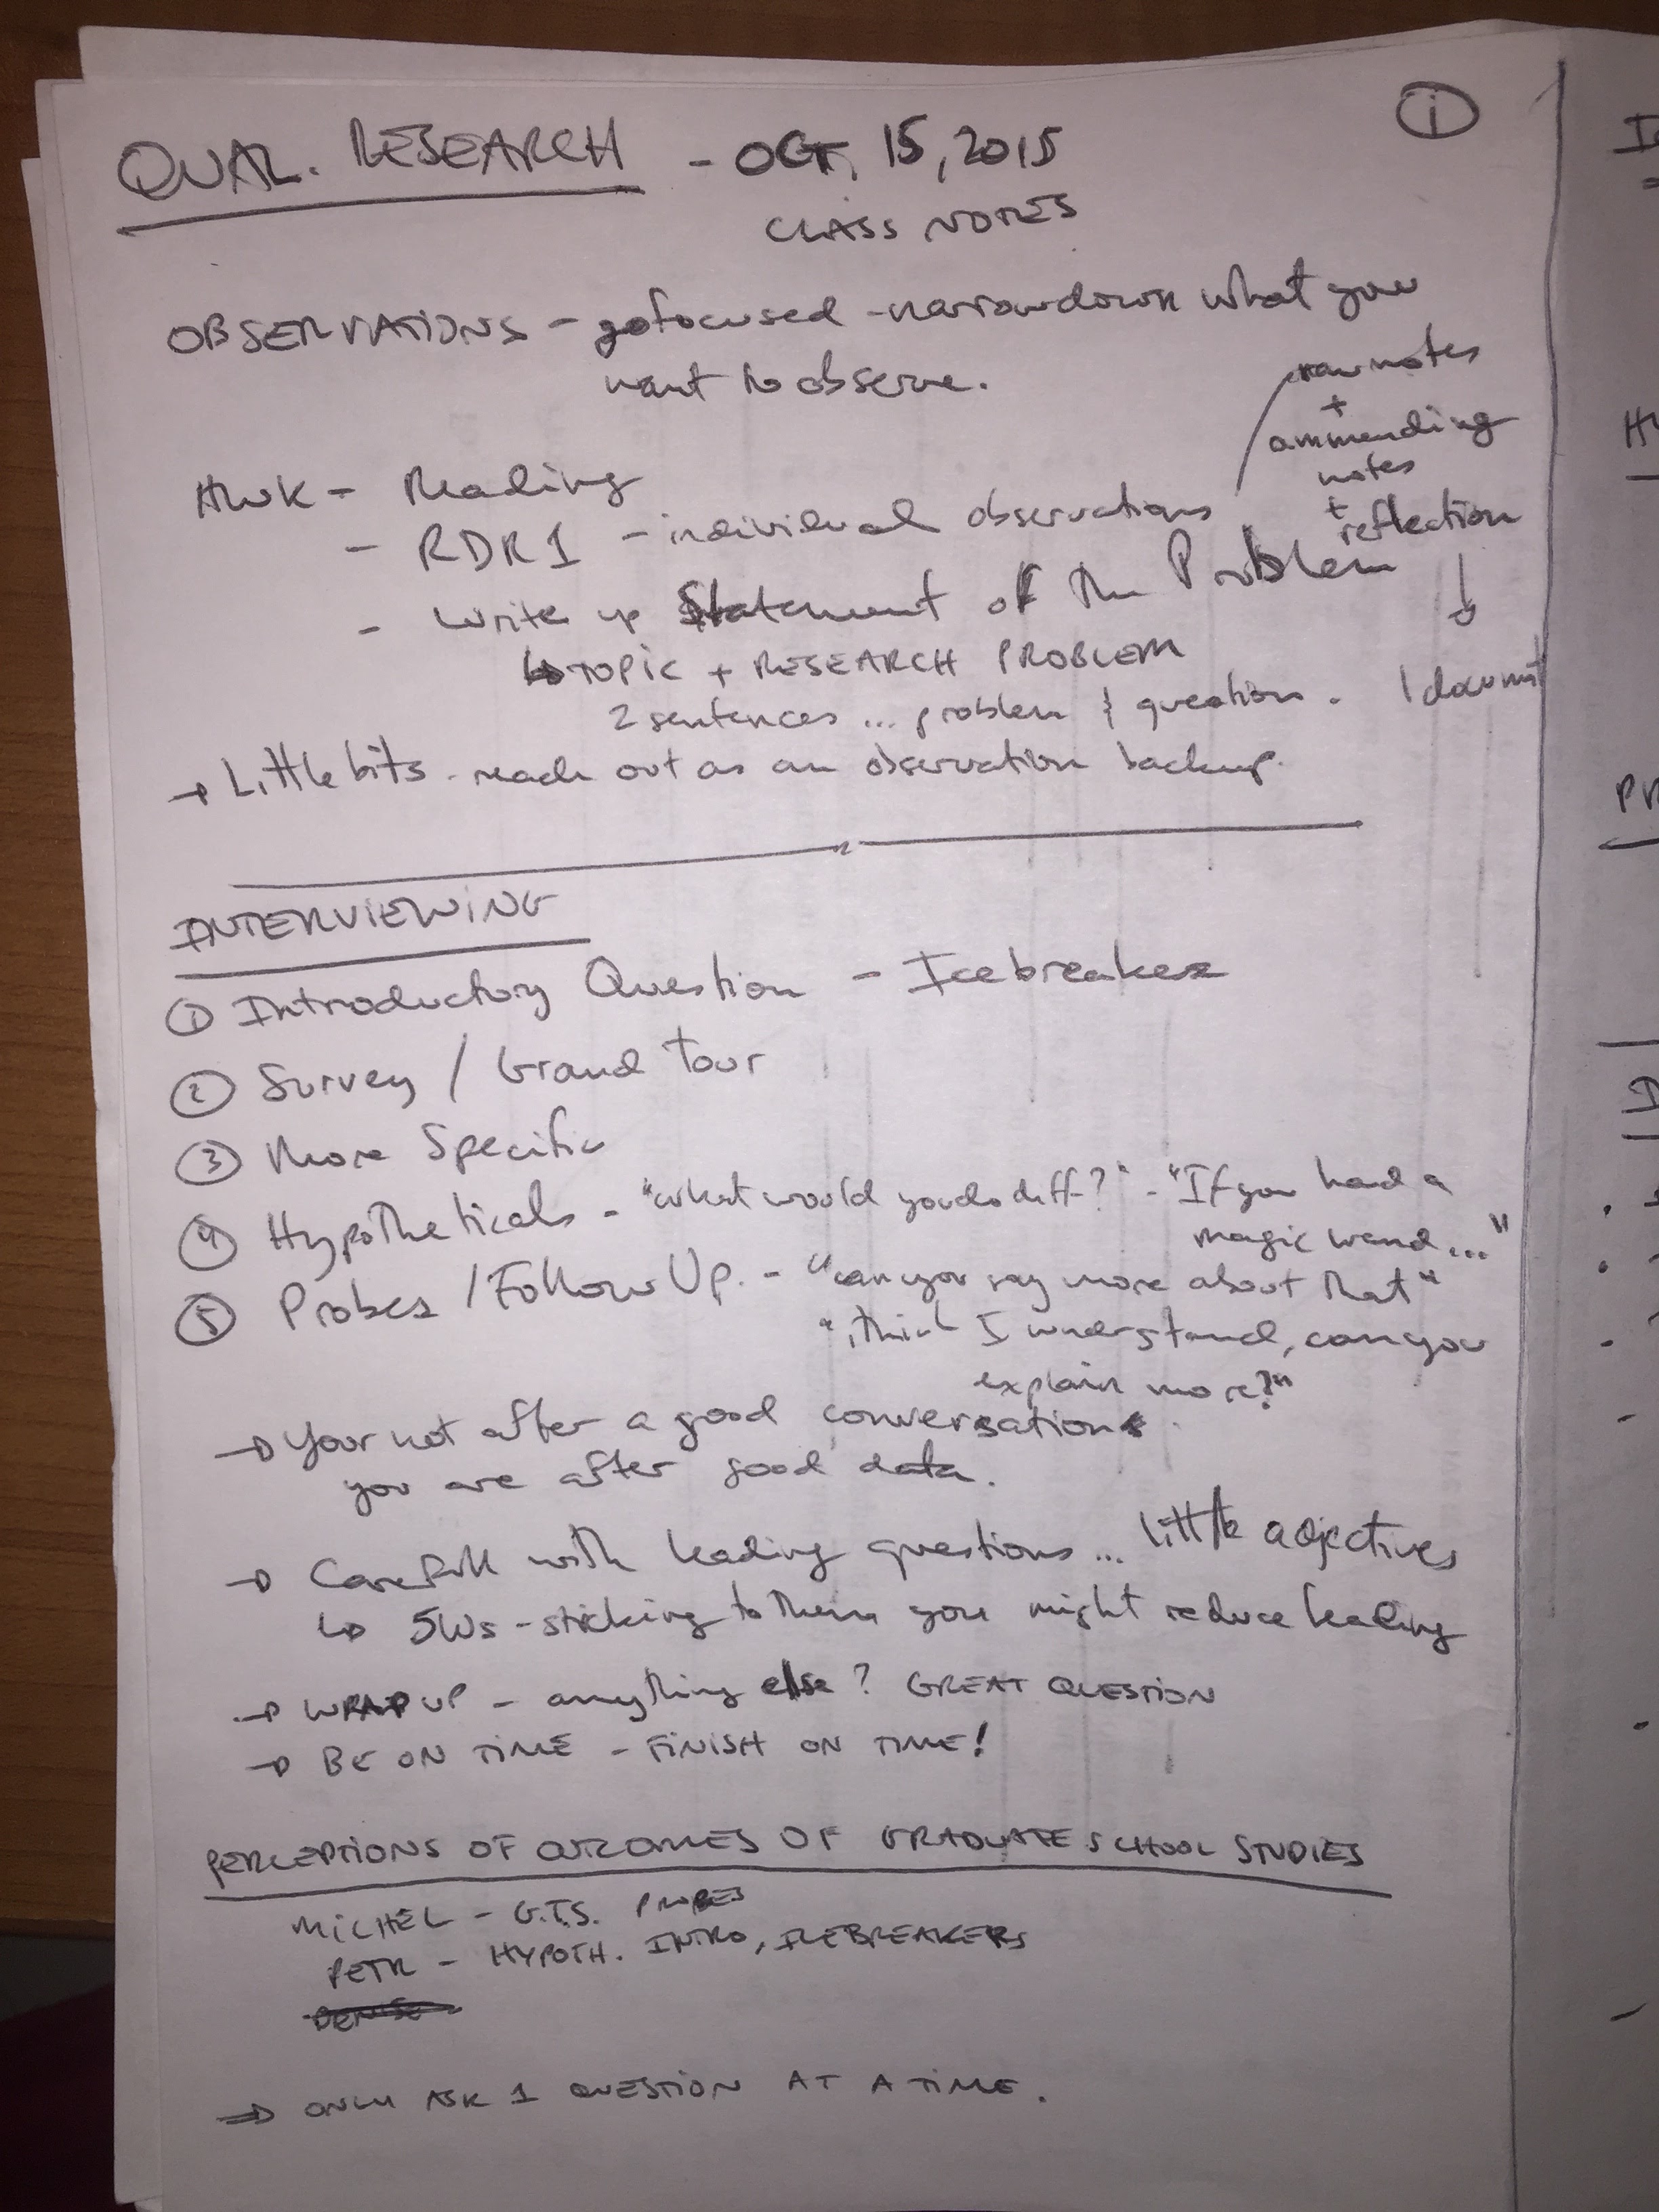 ①
QUAL. RESEARCH - OCT, 15, 2015
CLASS NOTES
OBSERVATIONS - go focused - narrow down what you
want to observe.
raw notes
+
ammending
notes
+
reflection
HWK - Reading
- RDR1 - individual observations
- Write up Statement of the Problem
↳ TOPIC + RESEARCH PROBLEM
2 sentences ... problem & question. 1 document
→ Littlebits - reach out as an observation backup.
INTERVIEWING
① Introductory Question - Icebreaker
② Survey / Grand Tour
③ More Specific
④ Hypotheticals - "what would you do diff?" - "If you had a
magic wand..."
⑤ Probes / Follow Up. - "can you say more about that"
"i think I understand, can you
explain more?"
→ Your not after a good conversation.
you are after good data.
→ Carefull with leading questions... little adjectives
↳ 5Ws - sticking to them you might reduce leading
→ WRAP UP - anything else? GREAT QUESTION
→ BE ON TIME - FINISH ON TIME!
PERCEPTIONS OF OUTCOMES OF GRADUATE SCHOOL STUDIES
MICHEL - G.T.S. PROBES
PETR - HYPOTH. INTRO, ICEBREAKERS
⇒ ONLY ASK 1 QUESTION AT A TIME.